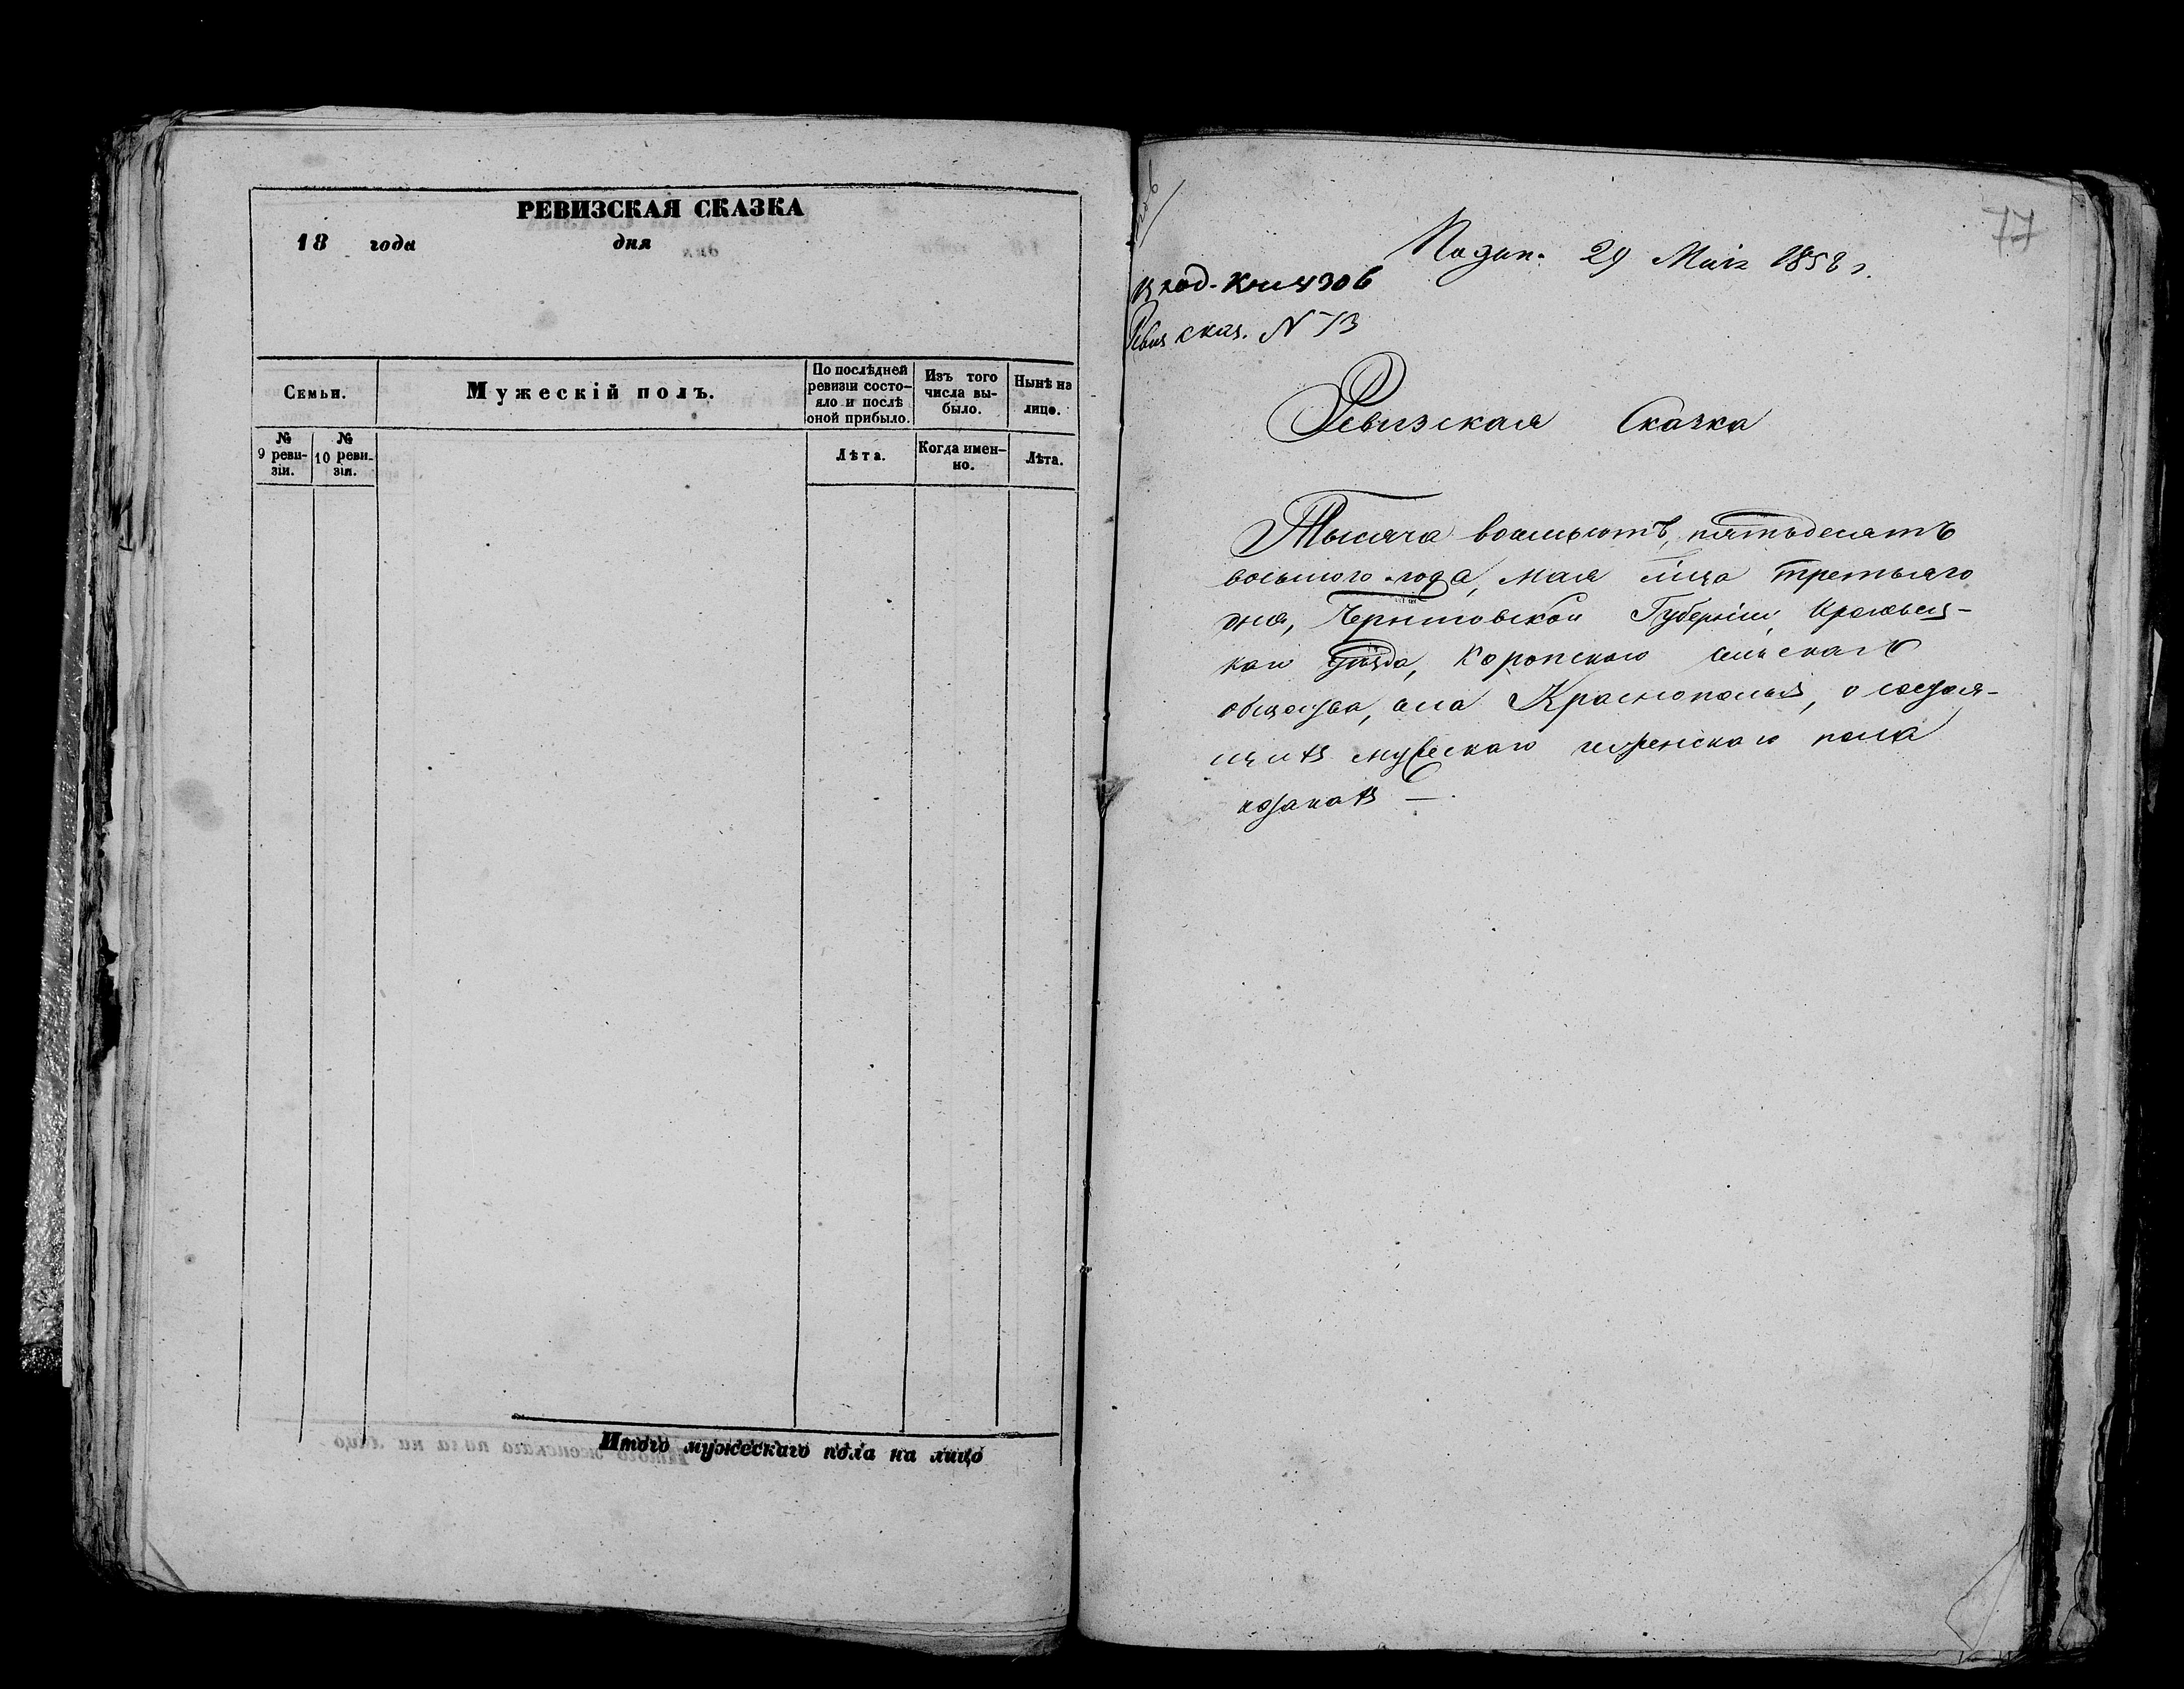 РЕВИЗСКАЯ СКАЗКА
18 года дня
Семьи.
Мужескій полъ.
По послѣдней ревизіи состо-
яло и послѣ оной прибыло.
Изъ того числа вы-
было.
Нынѣ на лице.
№ 9 реви-
зіи.
№ 10 реви-
зіи.
Лѣта.
Когда имен-
но.
Лѣта.
Итого мужескаго пола на лицо
77
29 Мая 1858 г.
Вход. Кни 4306
Ревиз сказ. N 73
Ревизская Сказка
Тысяча восемьсотъ, пятьдесятъ
восьмого года, мая м̃ца третьяго
дня, Черниговской Губерніи, Кролевец-
кого уѣзда, Коропского сельскаго
общества, села Краснополья, о состоя-
щихъ мужескаго и женскаго пола
козакахъ —